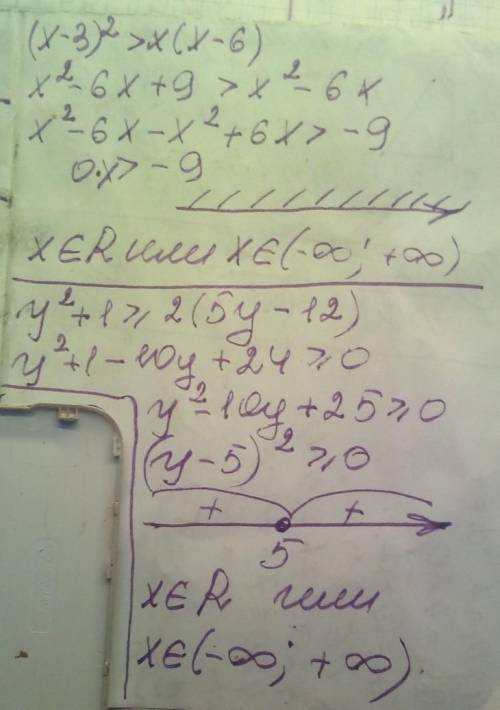 (x-3)² > x(x-6)
x²-6x+9 > x²-6x
x²-6x-x²+6x > -9
0·x > -9
x∈R или x∈(-∞; +∞)
y²+1 ≥ 2(5y-12)
y²+1-10y+24 ≥ 0
y²-10y+25 ≥ 0
(y-5)² ≥ 0
+ +
5
x∈R или
x∈(-∞; +∞).